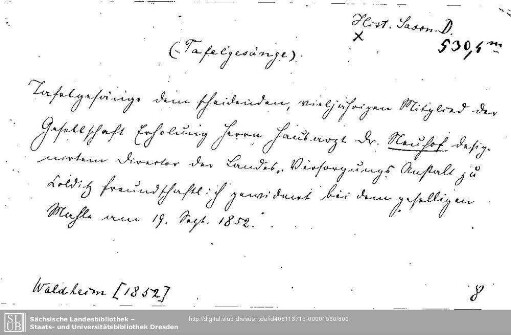 Hist. Saxon. D.
530,5 m
x
(Tafelgesänge).
Tafelgesänge dem scheidenden, vieljährigen Mitglied der
Gesellschaft Erholung Herrn Hausarzt Dr. Neuhof desig-
nirtem Director der Landes-Versorgungs Anstalt zu
Colditz freundschaftlich gewidmet bei dem geselligen
Mahle am 19. Sept. 1852.
Waldheim [1852]
8
SLUB
Sächsische Landesbibliothek –
Staats- und Universitätsbibliothek Dresden